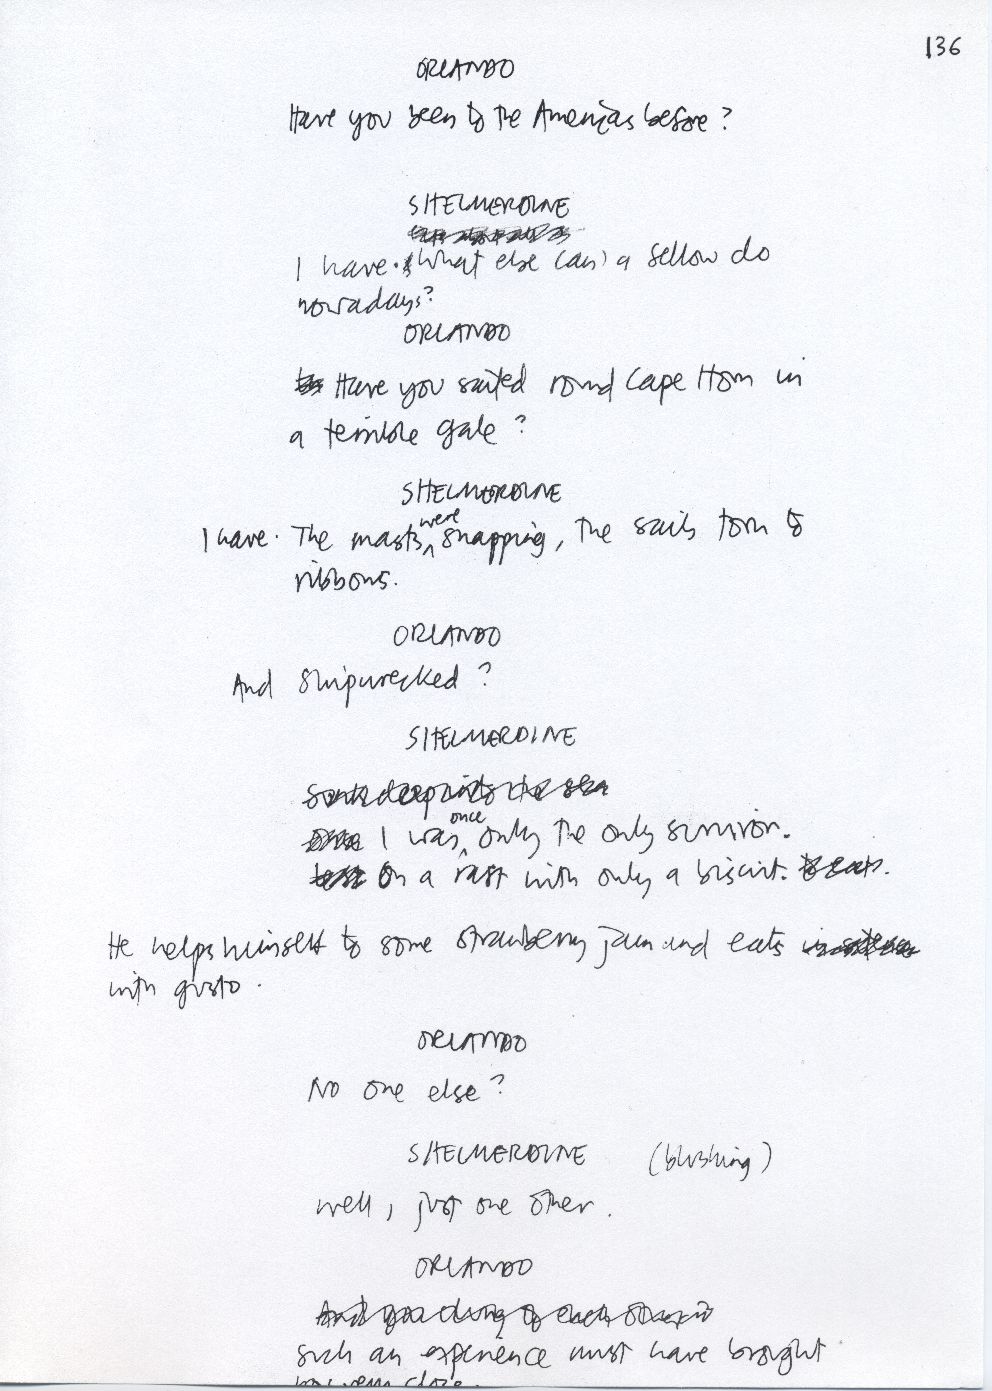 136
ORLANDO
Have you been to the Americas before?
SHELMERDINE
I have. What else can a fellow do
nowadays?
ORLANDO
Have you sailed round Cape Horn in
a terrible gale?
SHELMERDINE
I have. The masts were snapping, the sails torn to
ribbons.
ORLANDO
And shipwrecked?
SHELMERDINE
Sunk deep into the sea
I was once only the only survivor.
On a raft with only a biscuit.
He helps himself to some strawberry jam and eats
with gusto.
ORLANDO
No one else?
SHELMERDINE (blushing)
well, just one other.
ORLANDO
And you clung to each other
such an experience must have brought
you very close.